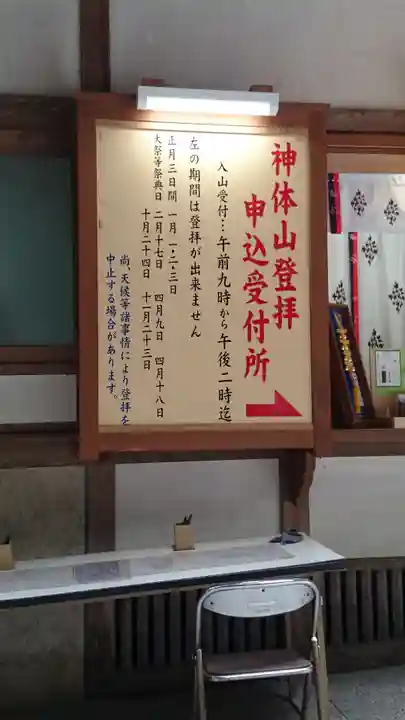 神体山登拝
申込受付所
入山受付…午前九時から午後二時迄
左の期間は登拝が出来ません
正月三日間 一月 一・二・三日
大祭等祭典日 二月十七日 四月九日 四月十八日
十月二十四日 十一月二十三日
尚、天候等諸事情により登拝を
中止する場合があります。